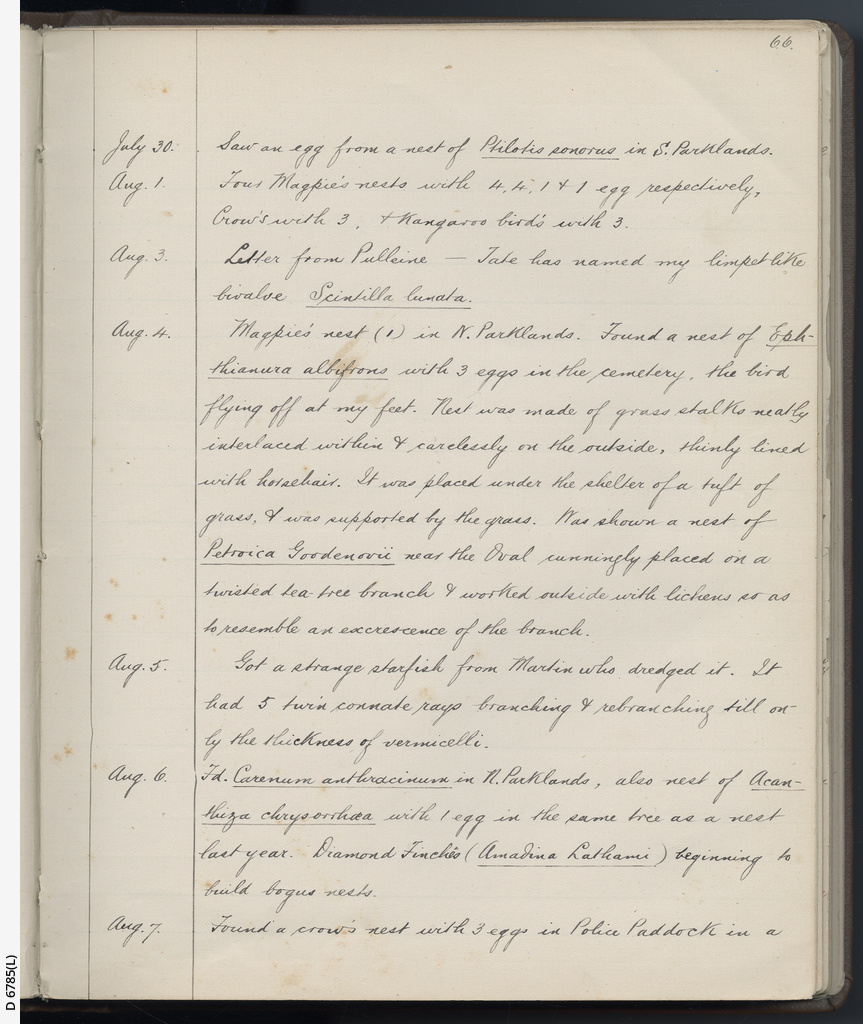 66.
July 30. Saw an egg from a nest of Ptilotis sonorus in S. Parklands.
Aug. 1. Four Magpie's nests with 4, 4, 1 & 1 egg respectively,
Crow's with 3, & Kangaroo bird's with 3.
Aug. 3. Letter from Pulleine — Tate has named my limpet like
bivalve Scintilla lunata.
Aug. 4. Magpie's nest (1) in N. Parklands. Found a nest of Eph-
thianura albifrons with 3 eggs in the cemetery, the bird
flying off at my feet. Nest was made of grass stalks neatly
interlaced within & carelessly on the outside, thinly lined
with horsehair. It was placed under the shelter of a tuft of
grass, & was supported by the grass. Was shown a nest of
Petroica Goodenovii near the Oval cunningly placed on a
twisted tea-tree branch & worked outside with lichens so as
to resemble an excrescence of the branch.
Aug. 5. Got a strange starfish from Martin who dredged it. It
had 5 twin connate rays branching & rebranching till on-
ly the thickness of vermicelli.
Aug. 6. Fd. Carenum anthracinum in N. Parklands, also nest of Acan-
thiza chrysorrhœa with 1 egg in the same tree as a nest
last year. Diamond Finches (Amadina Lathami) beginning to
build bogus nests.
Aug. 7. Found a crow's nest with 3 eggs in Police Paddock in a
D 6785(L)